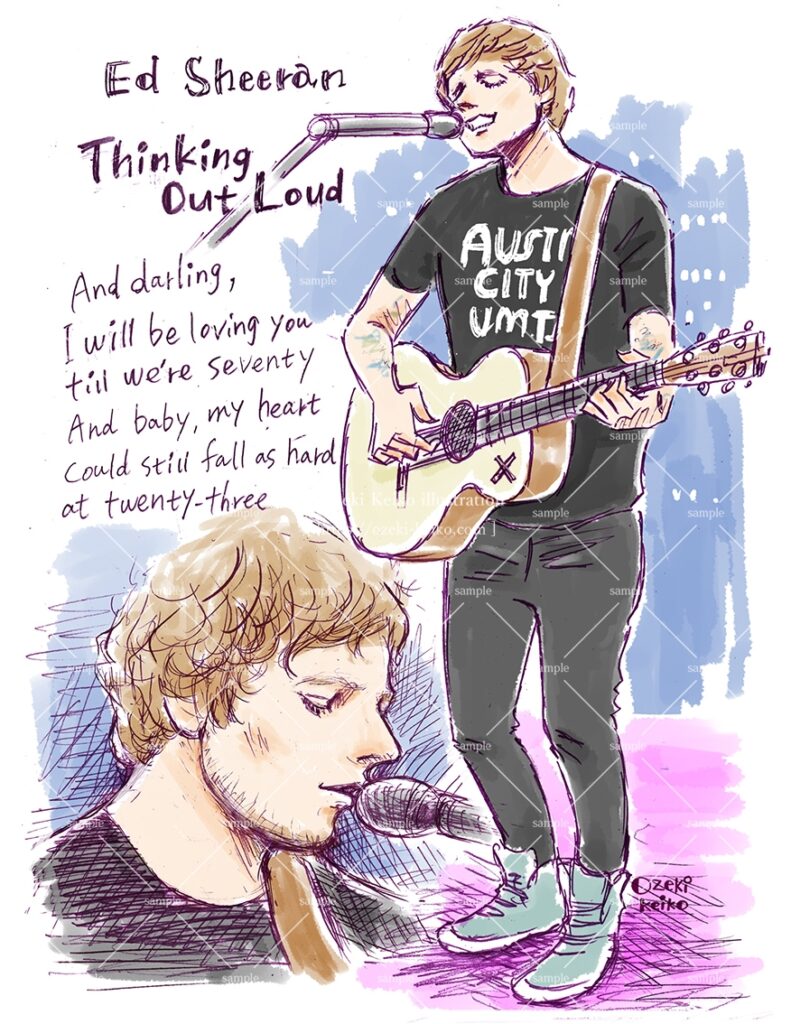 Ed Sheeran
Thinking
Out Loud
And darling,
I will be loving you
till we're seventy
And baby, my heart
could still fall as hard
at twenty-three
AUSTI
CITY
LIMITS
X
Ozeki
Keiko
Ozeki Keiko illustration
ezeki-keiko.com ]
sample